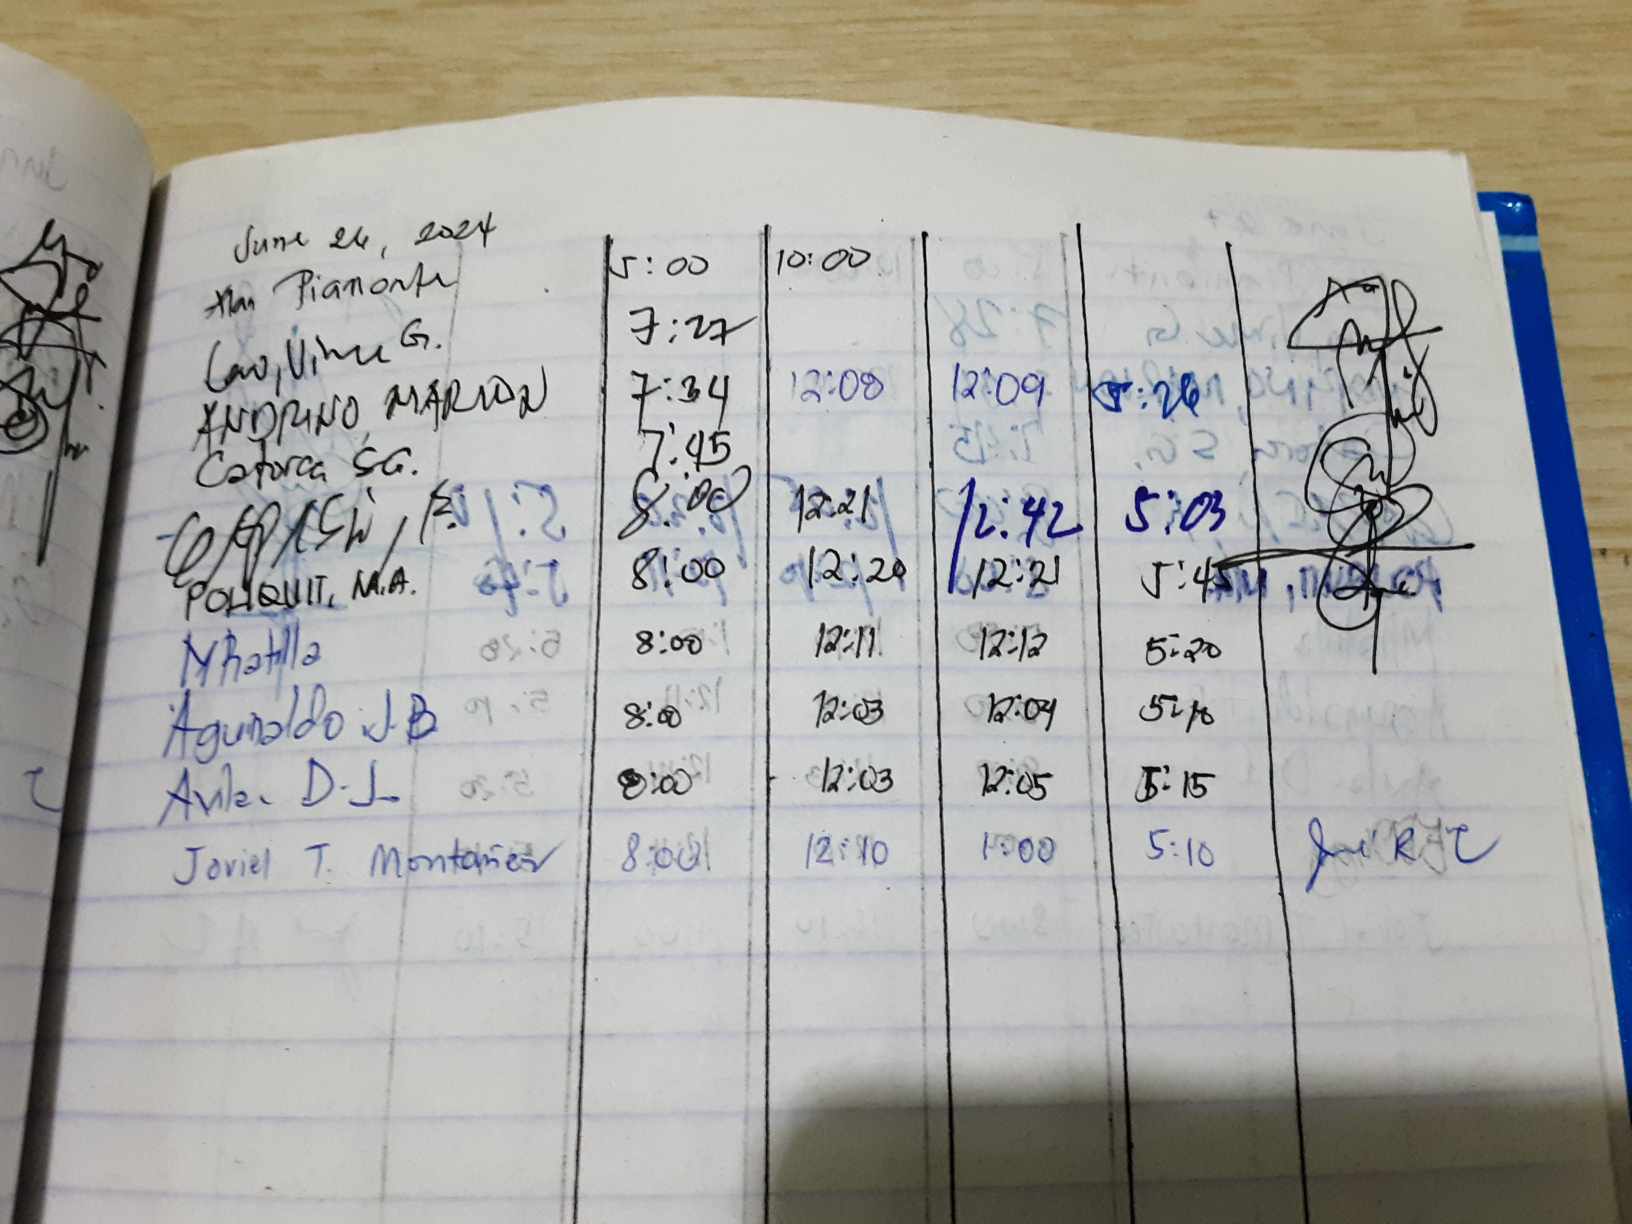 June 26, 2024
Alan Piamonte 5:00 10:00
Cao, Vince G. 7:27
ANDRINO, MARVON 7:34 12:08 12:09 5:26
Catorce SG. 7:45
8:00 12:21 12:42 5:03
POLIQUIT, M.A. 8:00 12:20 12:21 5:45
8:00 12:11 12:12 5:20
Aguinaldo J.B 8:00 12:03 12:04 5:10
Avila D.J 8:00 12:03 12:05 5:15
Joviel T. Montañez 8:00 12:10 1:00 5:10